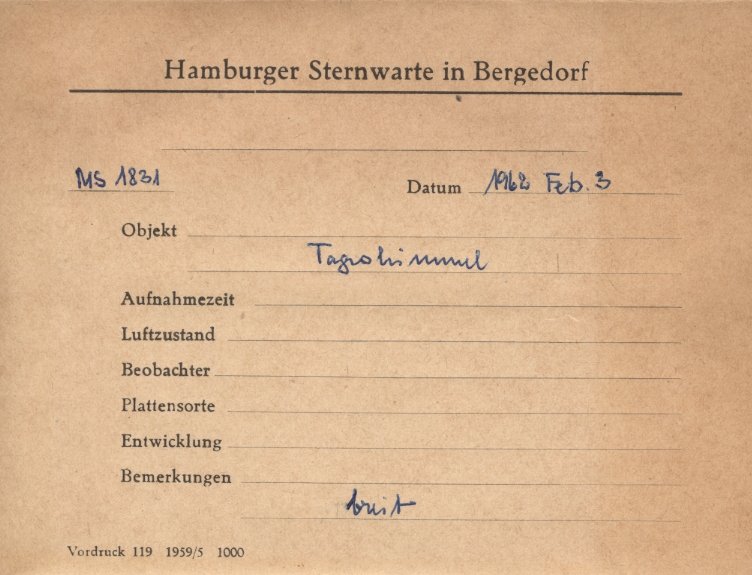 Hamburger Sternwarte in Bergedorf
MS 1831
Datum 1962 Feb. 3
Objekt
Tageshimmel
Aufnahmezeit
Luftzustand
Beobachter
Plattensorte
Entwicklung
Bemerkungen
breit
Vordruck 119 1959/5 1000